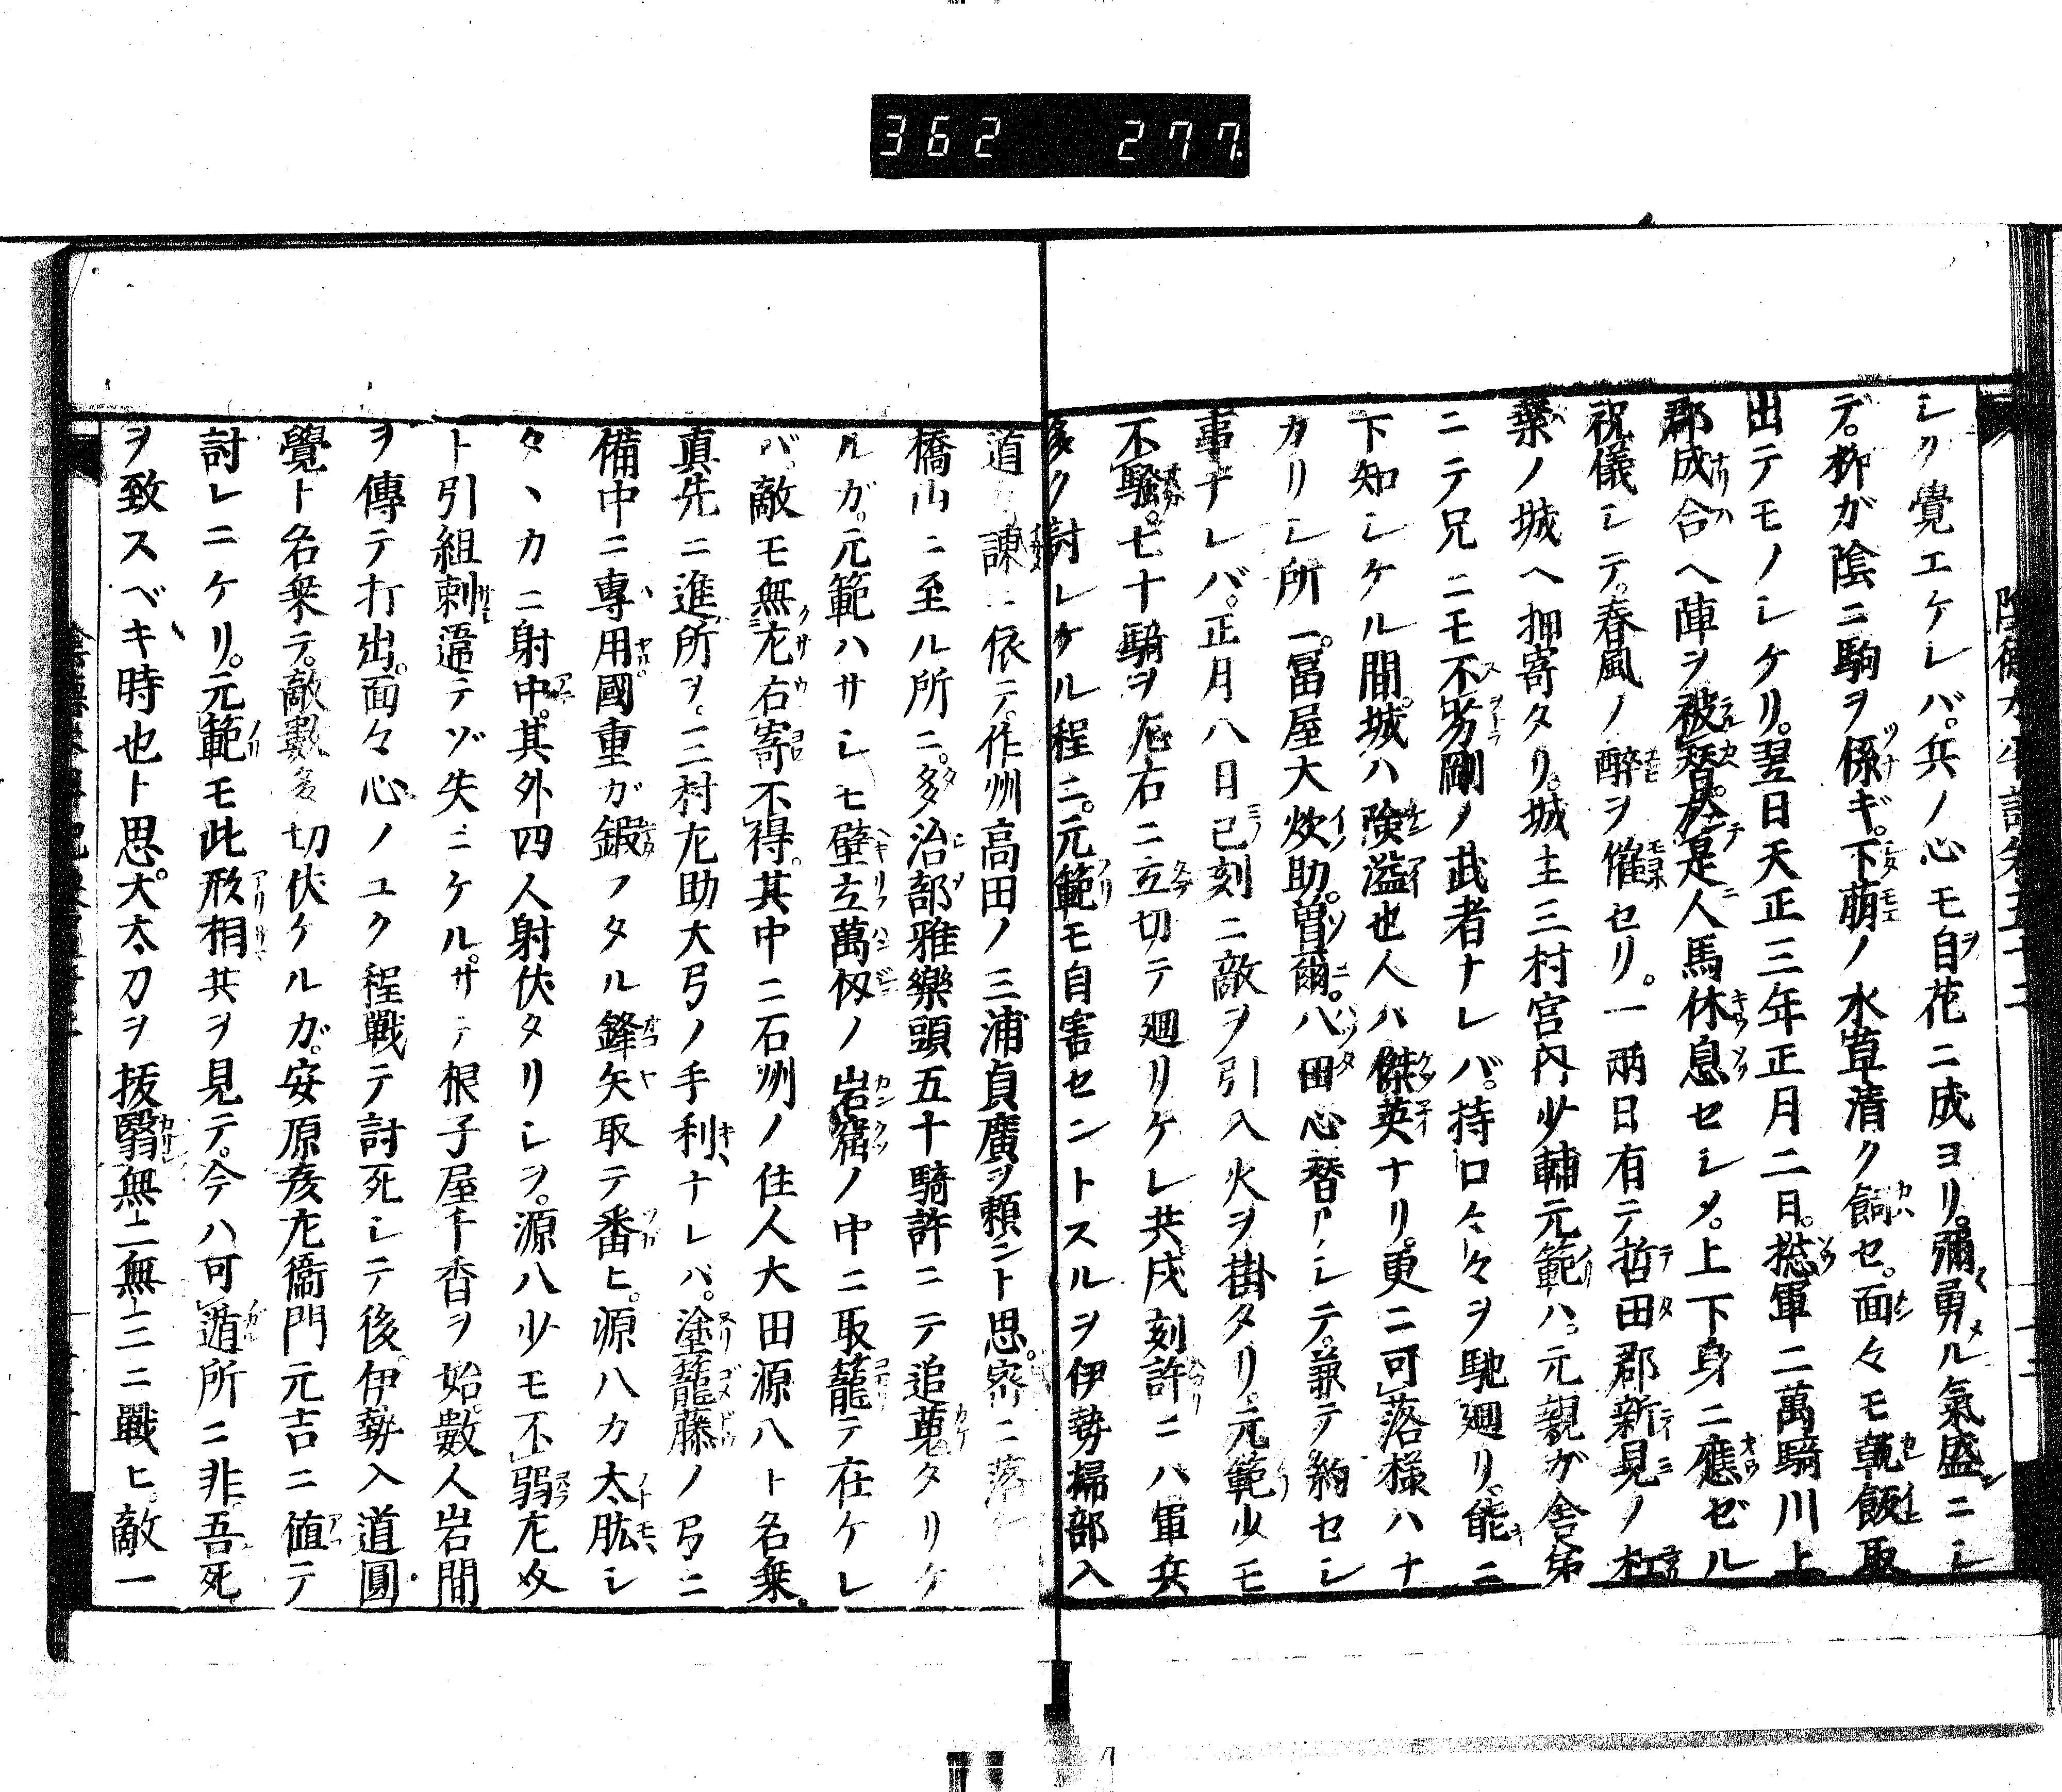 362 277
シク覺エケレバ。兵ノ心モ自花ニ成ヨリ。彌勇メル氣盛ニシ
デ。柳ガ陰ニ駒ヲ係ギ。下萠ノ水草清ク飼セ。面々モ乾飯取
出テモノシケリ。翌日天正三年正月二日。揔軍二萬騎川上
郡成合ヘ陣ヲ被替。於是人馬休息セシメ。上下身ニ應ゼル
祝儀シテ。春風ノ醉ヲ催セリ。一兩日有テ哲田郡新見ノ杠
葉ノ城ヘ押寄タリ。城主三村宮內少輔元範ハ。元親ガ舎弟
ニテ兄ニモ不劣剛ノ武者ナレバ。持口々々ヲ馳廻リ。能ニ
下知シケル間。城ハ險溢也人ハ傑英ナリ。更ニ可落様ハナ
カリシ所ニ。冨屋大炊助。曽爾。八田心替リシテ。兼テ約セシ
事ナレバ。正月八日己刻ニ敵ヲ引入火ヲ掛タリ。元範少モ
不騒。七十騎ヲ左右ニ立切テ廻リケレ共戌刻許ニハ軍兵
多ク討レケル程ニ。元範モ自害セントスルヲ伊勢掃部入
道ガ諫ニ依テ。作州高田ノ三浦貞廣ヲ頼ント思。密ニ落テ
橋山ニ至ル所ニ。多治部雅樂頭五十騎許ニテ追蒐タリケ
ルガ。元範ハサシモ壁立萬仭ノ岩窟ノ中ニ取籠テ在ケレ
バ。敵モ無左右寄不得。其中ニ石州ノ住人大田源八ト名乗。
真先ニ進所ヲ。三村左助大弓ノ手利ナレバ。塗籠藤ノ弓ニ
備中ニ專用國重ガ鍛フタル鋒矢取テ番ヒ。源八カ太肱シ
タヽカニ射中。其外四人射伏タリシヲ。源八少モ不弱左殳
ト引組刺違テゾ失ニケル。サテ根子屋千香ヲ始。數人岩間
ヲ傳テ打出。面々心ノユク程戦テ討死シテ後。伊勢入道圓
覺ト名乗テ。敵數多切伏ケルガ。安原彦左衞門元吉ニ値テ
討レニケリ。元範モ此形相共ヲ見テ。今ハ可遁所ニ非。吾死
ヲ致スベキ時也ト思。大太刀ヲ抜翳無二無三ニ戰ヒ。敵一